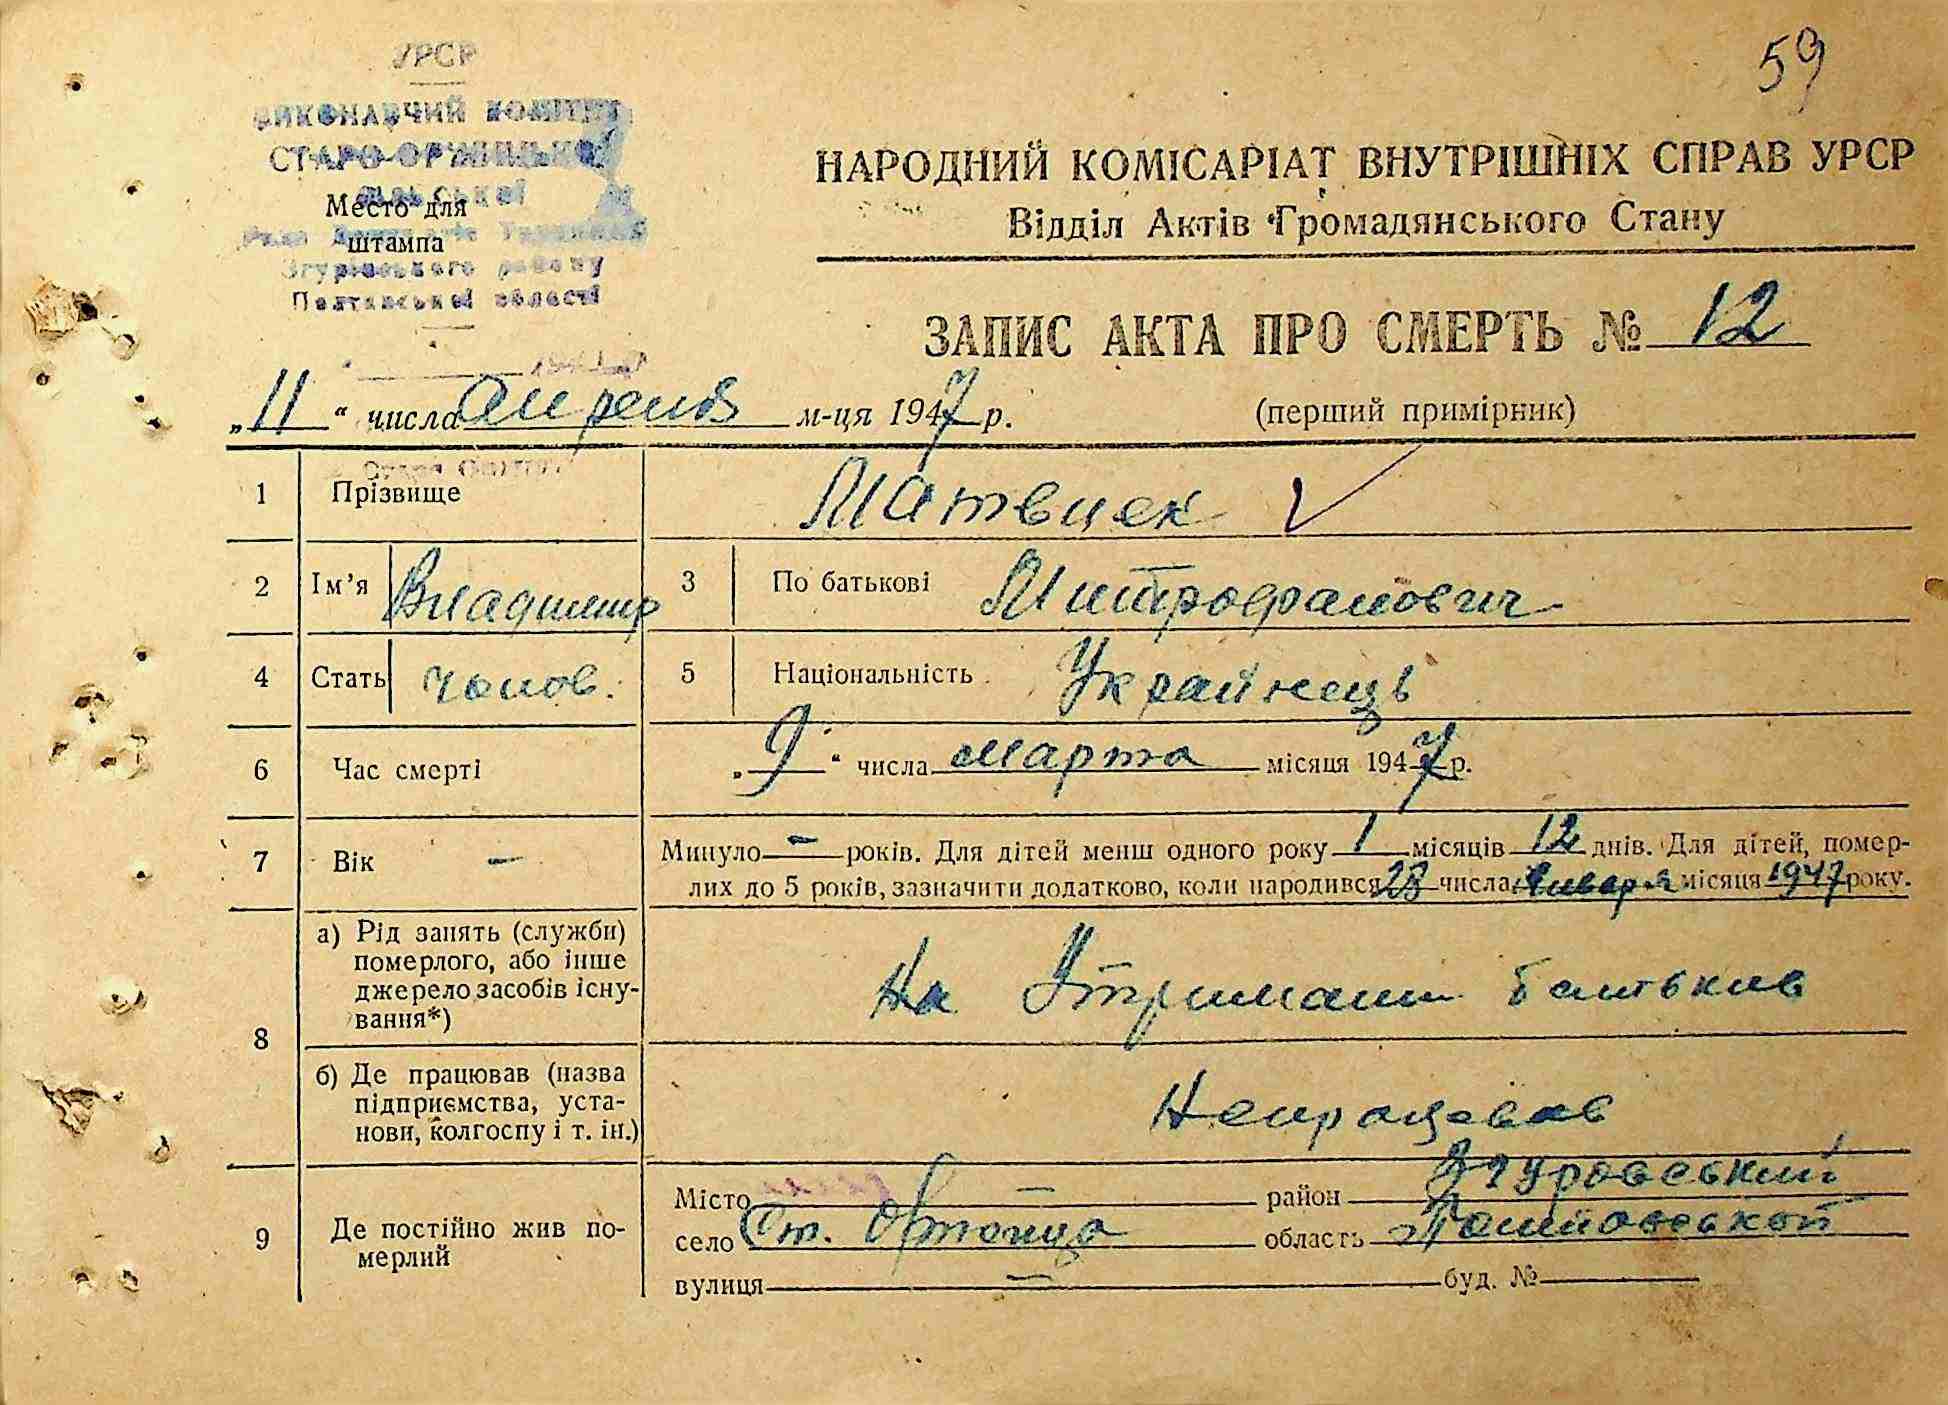 59
УРСР
ВИКОНАВЧИЙ КОМІТЕТ
СТАРО-ОРЖИЦЬКОЇ
сільської
Ради Депутатів Трудящих
Згурівського району
Полтавської області
Место для
штампа
НАРОДНИЙ КОМІСАРІАТ ВНУТРІШНІХ СПРАВ УРСР
Відділ Актів Громадянського Стану
ЗАПИС АКТА ПРО СМЕРТЬ № 12
„11“ числа апреля м-ця 1947 р.
(перший примірник)
1 Прізвище Матвиек
2 Ім’я Владимир 3 По батькові Митрофанович
4 Стать чолов. 5 Національність Украйнець
6 Час смерті „9“ числа марта місяця 1947 р.
7 Вік – Минуло – років. Для дітей менш одного року 1 місяців 12 днів. Для дітей, помер-
лих до 5 років, зазначити додатково, коли народився 28 числа января місяця 1947 року.
8 а) Рід занять (служби)
померлого, або інше
джерело засобів існу-
вання*)
На Утримани батькив
б) Де працював (назва
підприємства, уста-
нови, колгоспу і т. ін.)
Непрацевав
9 Де постійно жив по-
мерлий
Місто — район Згуровський
село Ст. Оржица область Полтавськой
вулиця — буд. №